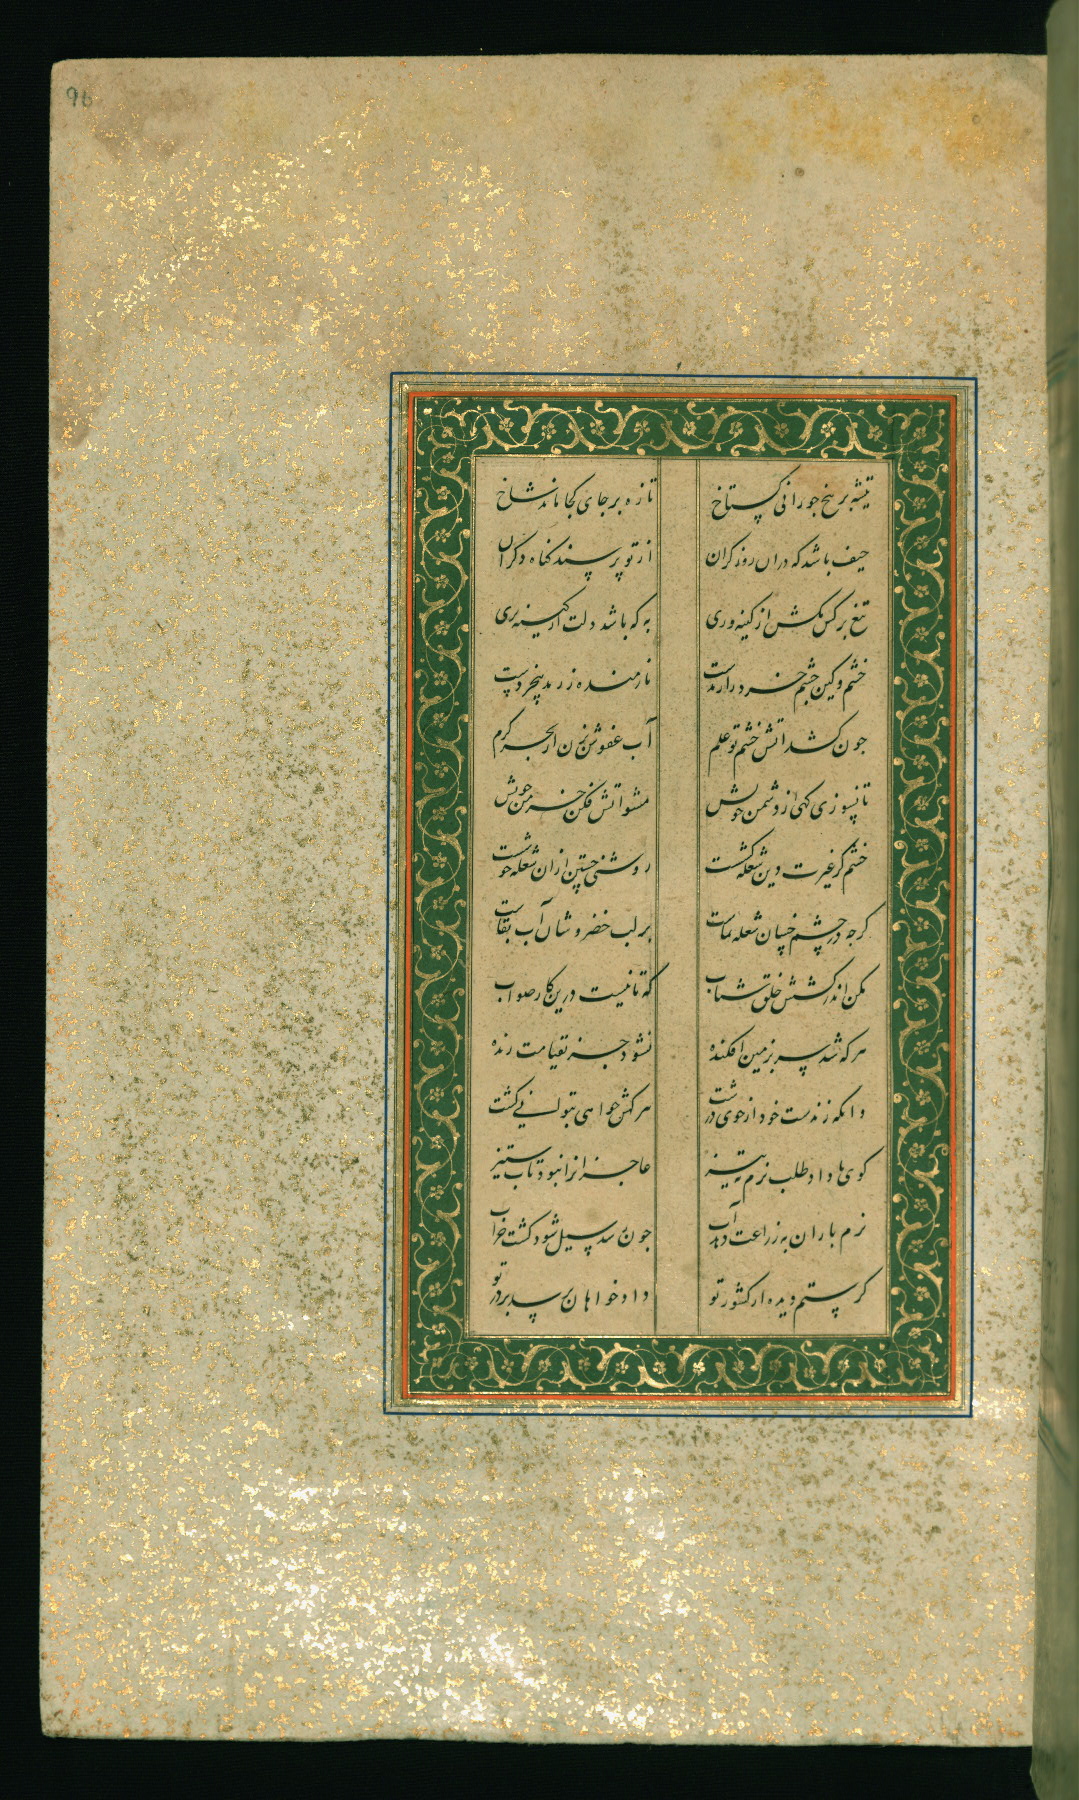 96
تیشه بر بیخ جو رانی کستاخ تازه بر جای کجا ماند شاخ
حیف باشد که دران روز کران از تو پرسند کناه دکران
تیغ بر کس مکش از کینه وری به که باشد دلت از کینه بری
خشم و کین چشم خرد را رمدست
جون کشد اتش خشم تو علم آب عفوش بزن از بحر کرم
تا نسوزی کهی از دشمن خویش مشو اتش فکن خرمن خویش
خشم کر غیرت دین شعله کشت روشنی جستن ازان شعله خوشت
کرجه در چشم خسان شعله نماست بر لب خضروشان آب بقاست
مکن اندر کشش خلق شتاب که تانیست درین کار صواب
هر که شد سر بزمین افکنده نشود جز بقیامت زنده
وانکه زندست خود از خوی درشت هر کش خواهی بتوانی کشت
کوی با داد طلب نرم نه تیز عاجز انرا نبود تاب ستیز
نرم باران به زراعت دهد آب جون رسد سیل شود کشت خراب
کر ستم دیده از کشور تو داد خواهان برسد بر در تو